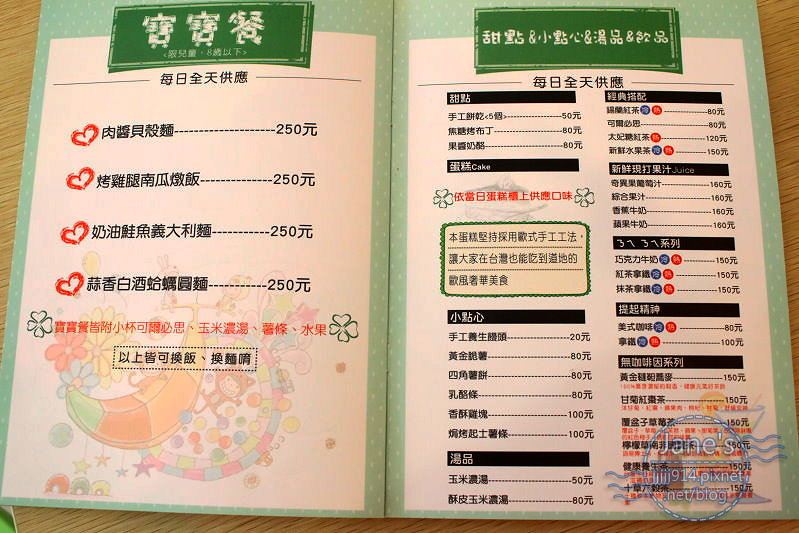 寶寶餐
<限兒童，8歲以下>
每日全天供應
肉醬貝殼麵--------------------250元
烤雞腿南瓜燉飯---------------250元
奶油鮭魚義大利麵------------250元
蒜香白酒蛤蠣圓麵------------250元
寶寶餐皆附小杯可爾必思、玉米濃湯、薯條、水果
以上皆可換飯、換麵唷
甜點&小點心&湯品&飲品
每日全天供應
甜點
手工餅乾<5個>--------------------50元
焦糖烤布丁--------------------80元
果醬奶酪--------------------80元
蛋糕Cake
依當日蛋糕櫃上供應口味
本蛋糕堅持採用歐式手工工法，
讓大家在台灣也能吃到道地的
歐風奢華美食
小點心
手工養生饅頭--------------------20元
黃金脆薯--------------------80元
四角薯餅--------------------80元
乳酪條--------------------80元
香酥雞塊--------------------100元
焗烤起士薯條--------------------100元
湯品
玉米濃湯--------------------50元
酥皮玉米濃湯--------------------80元
經典搭配
錫蘭紅茶 冷 熱--------------------80元
可爾必思--------------------80元
太妃糖紅茶 熱--------------------120元
新鮮水果茶 冷 熱--------------------150元
新鮮現打果汁Juice
奇異果葡萄汁--------------------160元
綜合果汁--------------------160元
香蕉牛奶--------------------160元
蘋果牛奶--------------------160元
ㄋㄟ ㄋㄟ系列
巧克力牛奶 冷 熱--------------------150元
紅茶拿鐵 冷 熱--------------------150元
抹茶拿鐵 冷 熱--------------------150元
提起精神
美式咖啡 冷 熱--------------------80元
拿鐵 冷 熱--------------------100元
無咖啡因系列
黃金韃靼蕎麥--------------------150元
甘菊紅棗茶--------------------150元
覆盆子草莓茶--------------------150元
檸檬草南非
健康養生茶--------------------150元
十草六穀茶--------------------150元
Jane's
jijij914.pixnet
.net/blog